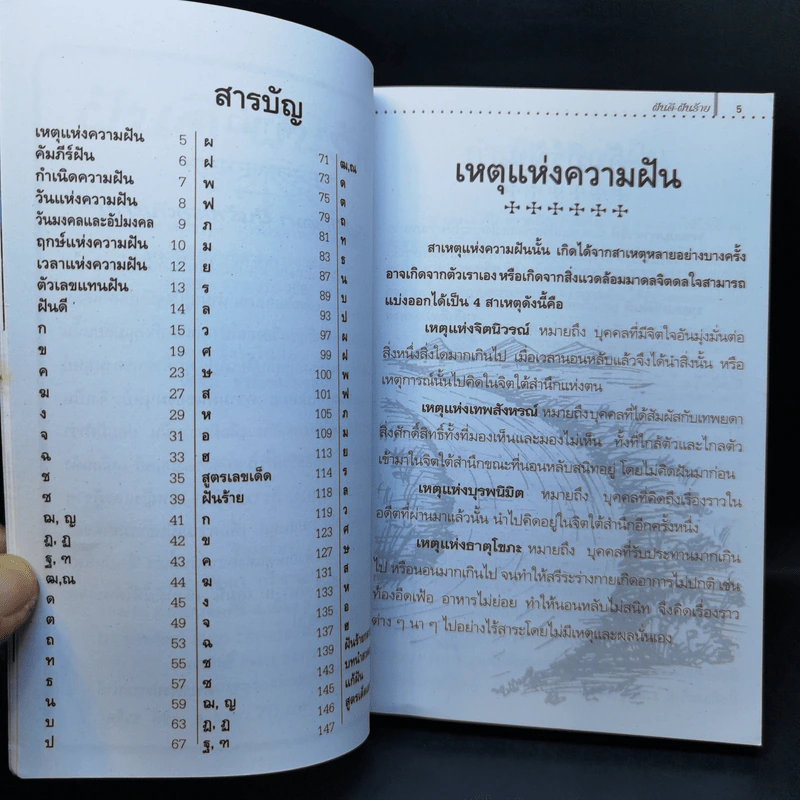 สารบัญ
เหตุแห่งความฝัน 5
คัมภีร์ฝัน 6
กำเนิดความฝัน 7
วันแห่งความฝัน 8
วันมงคลและอัปมงคล 9
ฤกษ์แห่งความฝัน 10
เวลาแห่งความฝัน 12
ตัวเลขแทนฝัน 13
ฝันดี 14
ก 15
ข 19
ค 23
ฆ 27
ง 29
จ 31
ฉ 33
ช 35
ซ 39
ฌ, ญ 41
ฎ, ฏ 42
ฐ, ฑ 43
ฒ,ณ 44
ด 45
ต 49
ถ 53
ท 55
ธ 57
น 59
บ 63
ป 67
ผ 71
ฝ 73
พ 75
ฟ 79
ภ 81
ม 83
ย 87
ร 89
ล 93
ว 97
ศ 99
ษ 100
ส 101
ห 105
อ 109
ฮ 113
สูตรเลขเด็ด 114
ฝันร้าย 118
ก 119
ข 123
ค 127
ฆ 131
ง 133
จ 135
ฉ 137
ช 139
ซ 143
ฌ, ญ 145
ฎ, ฏ 146
ฐ, ฑ 147
ฒ,ณ
ด
ต
ถ
ท
ธ
น
บ
ป
ผ
ฝ
พ
ฟ
ภ
ม
ย
ร
ล
ว
ศ
ษ
ส
ห
อ
ฮ
แก้ฝัน
ฝันดี-ฝันร้าย 5
เหตุแห่งความฝัน
สาเหตุแห่งความฝันนั้น เกิดได้จากสาเหตุหลายอย่างบางครั้ง
อาจเกิดจากตัวเราเอง หรือเกิดจากสิ่งแวดล้อมมาดลจิตดลใจสามารถ
แบ่งออกได้เป็น 4 สาเหตุดังนี้คือ
เหตุแห่งจิตนิวรณ์ หมายถึง บุคคลที่มีจิตใจอันมุ่งมั่นต่อ
สิ่งหนึ่งสิ่งใดมากเกินไป เมื่อเวลานอนหลับแล้วจึงได้นำสิ่งนั้น หรือ
เหตุการณ์นั้นไปคิดในจิตใต้สำนึกแห่งตน
เหตุแห่งเทพสังหรณ์ หมายถึงบุคคลที่ได้สัมผัสกับเทพยดา
สิ่งศักดิ์สิทธิ์ทั้งที่มองเห็นและมองไม่เห็น ทั้งที่ใกล้ตัวและไกลตัว
เข้ามาในจิตใต้สำนึกขณะที่นอนหลับสนิทอยู่ โดยไม่คิดฝันมาก่อน
เหตุแห่งบุรพนิมิต หมายถึง บุคคลที่คิดถึงเรื่องราวใน
อดีตที่ผ่านมาแล้วนั้น นำไปคิดอยู่ในจิตใต้สำนึกอีกครั้งหนึ่ง
เหตุแห่งธาตุโขภะ หมายถึง บุคคลที่รับประทานมากเกิน
ไป หรือนอนมากเกินไป จนทำให้สรีระร่างกายเกิดอาการไม่ปกติ เช่น
ท้องอืดเฟ้อ อาหารไม่ย่อย ทำให้นอนหลับไม่สนิท จึงคิดเรื่องราว
ต่าง ๆ นา ๆ ไปอย่างไร้สาระโดยไม่มีเหตุและผลนั่นเอง